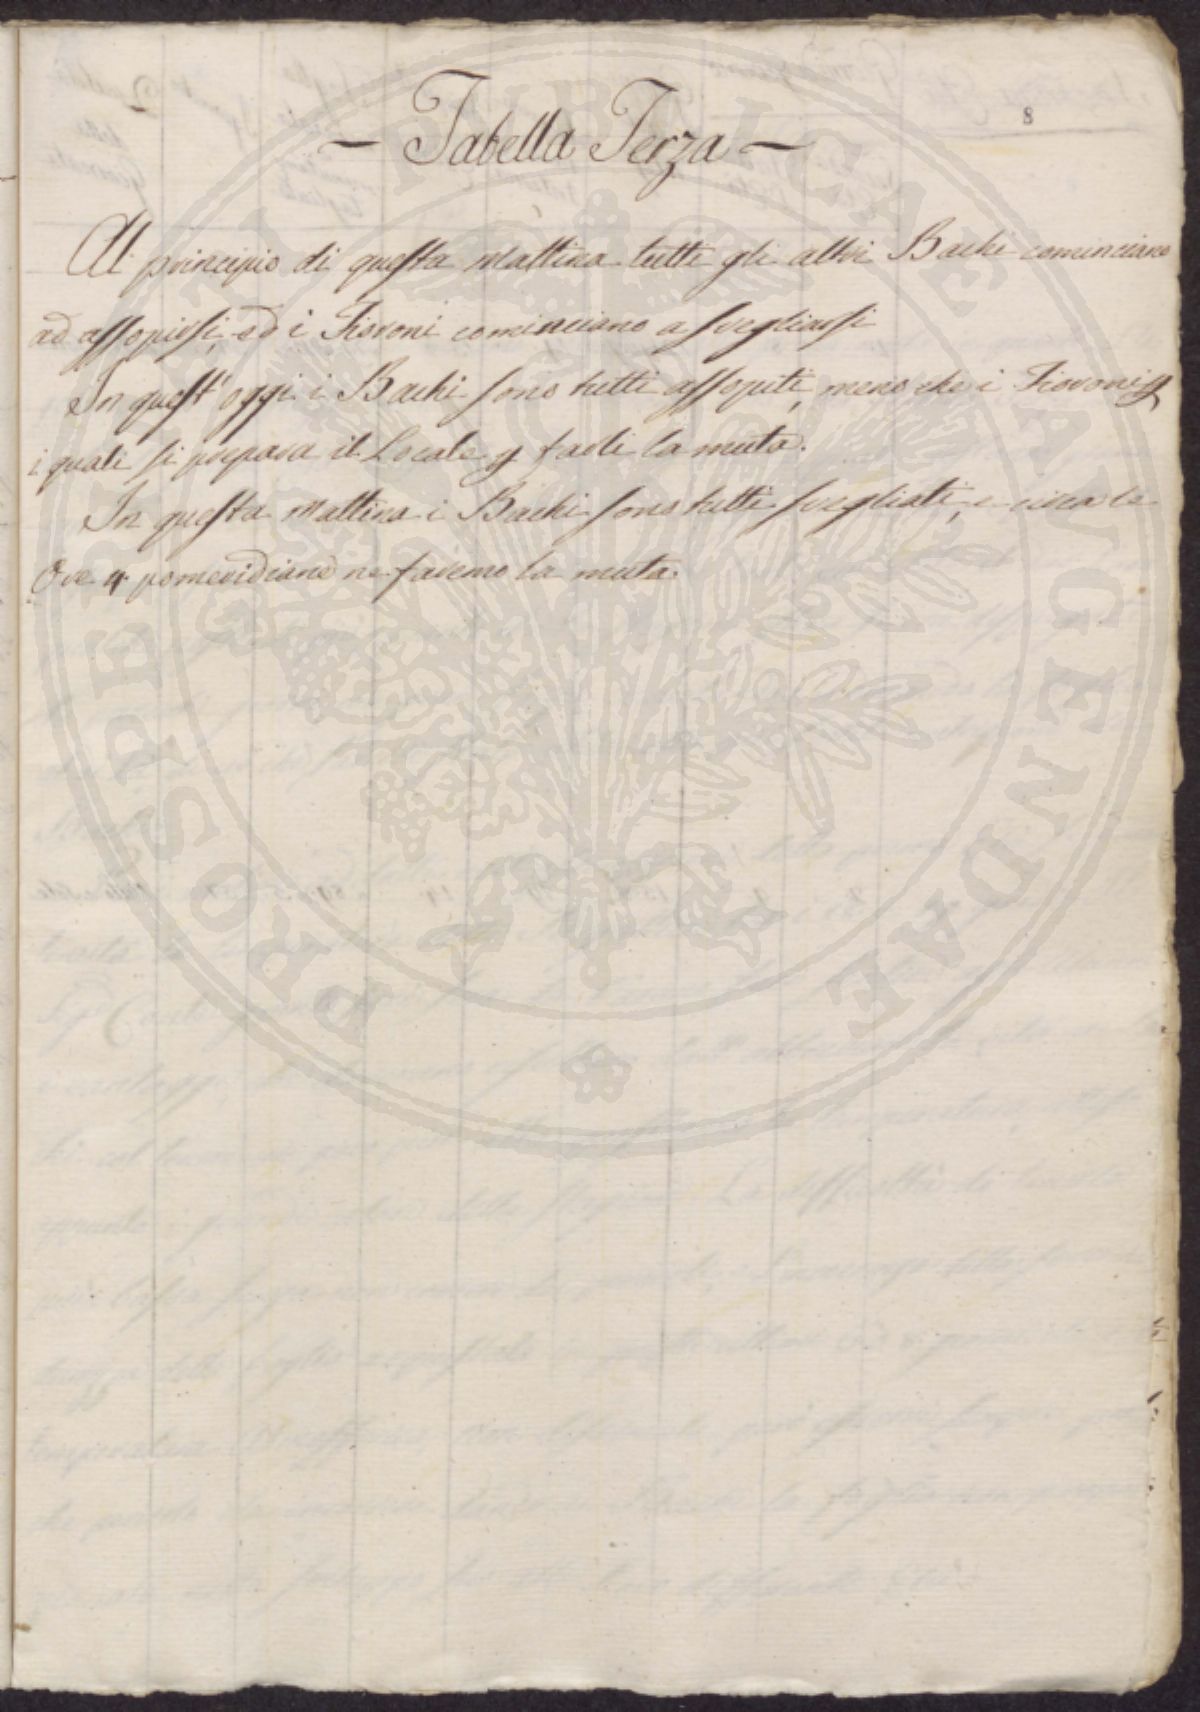 8
– Tabella Terza –
Al principio di questa mattina tutti gli altri Bachi cominciano
ad assopirsi, ed i Fioroni cominciano a svegliarsi
In quest'oggi i Bachi sono tutti assopiti, meno che i Fioroni p
i quali si prepara il Locale p farli la muta.
In questa mattina i Bachi sono tutti svegliati, e circa le
Ore 4 pomeridiane ne faremo la muta.
PROSPERITATI PUBLICAE AVGENDAE